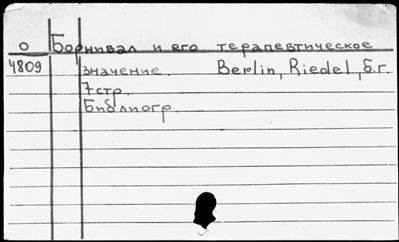 О Борнивал и его терапевтическое
4809 значение. Berlin, Riedel, б.г.
7 стр.
Библиогр.